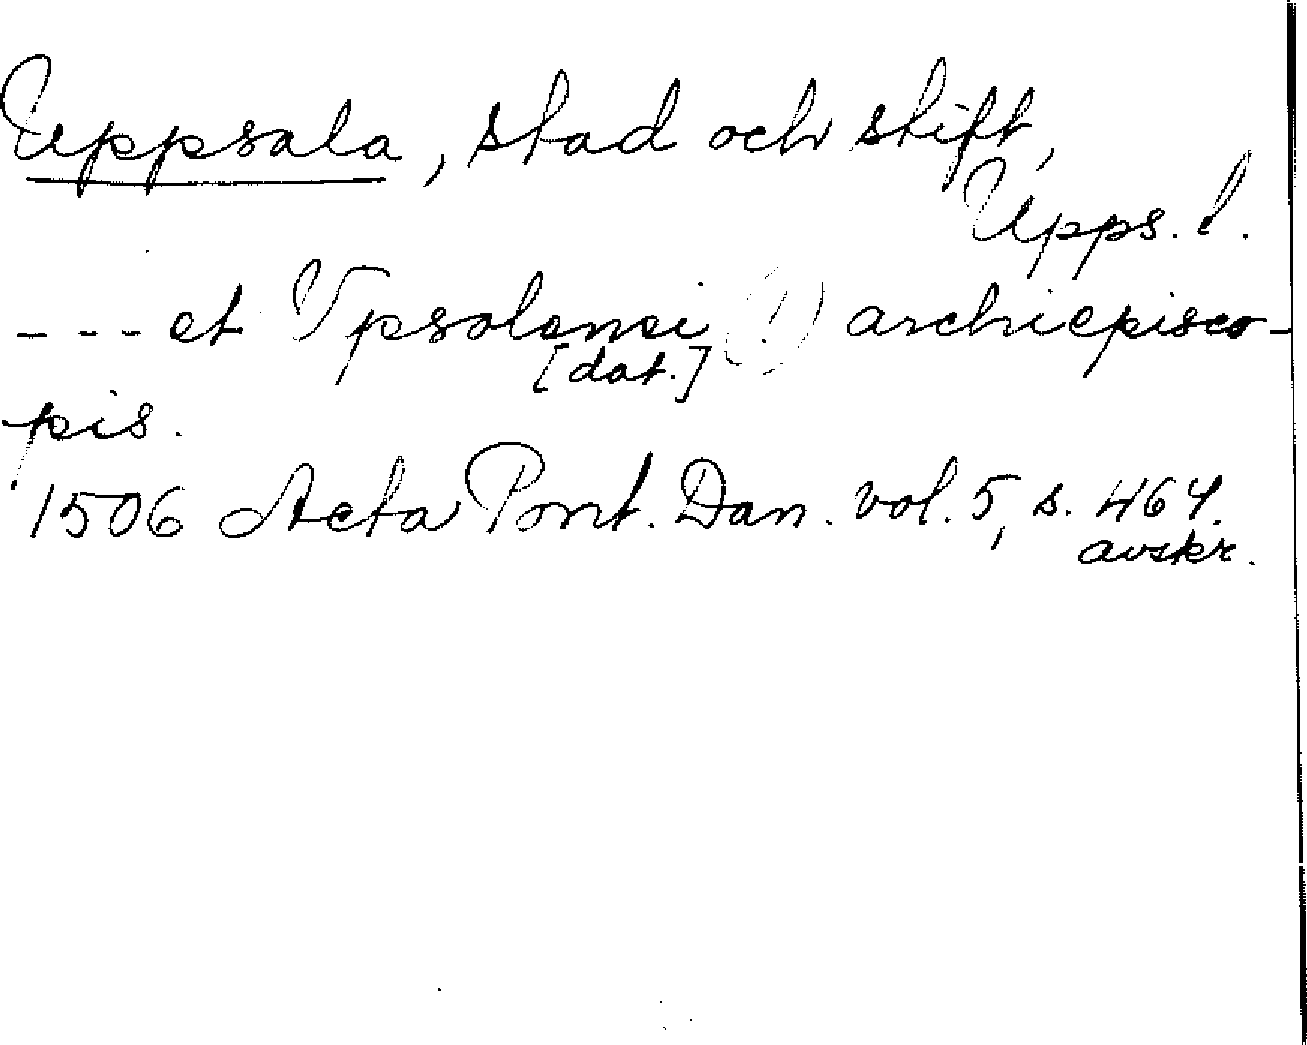 Uppsala, stad och stift,
Upps. l.
--- et Vpsolensi (!) archiepisco-
[dat.]
pis.
1506 Acta Pont. Dan. vol. 5, s. 464.
avskr.